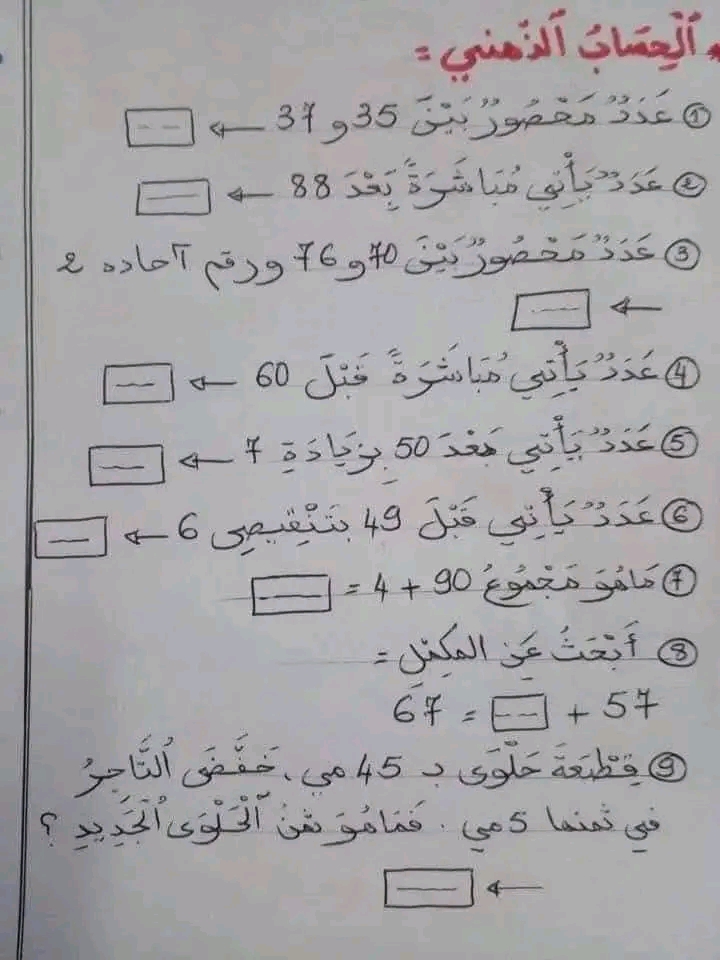 اَلْحِسَابُ اَلذِّهني =
① عَدَدٌ مَحْصُورٌ بَيْنَ 35 و 37 ← --
② عَدَدٌ يَأْتِي مُبَاشَرَةً بَعْدَ 88 ← --
③ عَدَدٌ مَحْصُورٌ بَيْنَ 70 و 76 ورقم آحاده 2
← --
④ عَدَدٌ يَأْتِي مُبَاشَرَةً قَبْلَ 60 ← --
⑤ عَدَدٌ يَأْتِي بَعْدَ 50 بِزِيَادَةِ 7 ← --
⑥ عَدَدٌ يَأْتِي قَبْلَ 49 بتَنْقِيصِ 6 ← --
⑦ مَاهُوَ مَجْمُوعُ 90 + 4 = --
⑧ أَبْحَثُ عَنِ المكمّلِ =
57 + -- = 67
⑨ قِطْعَةَ حَلْوَى بـ 45 مي، خَفَّضَ اُلتَّاجِرُ
في ثمنها 5 مي. فَمَاهُوَ ثمَنُ اَلْحَلْوَى اُلْجَدِيدِ ؟
← --